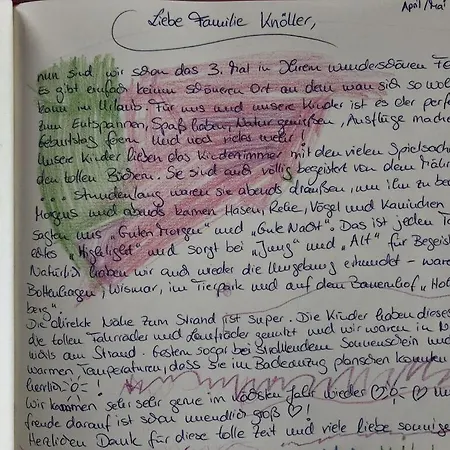 April/Mai
Liebe Familie Knöller,
nun sind wir schon das 3. Mal in Ihrem wunderschönen Fe
Es gibt einfach keinen schöneren Ort an dem man sich so wohl
kann im Urlaub. Für uns und unsere Kinder ist es der perfe
zum Entspannen, Spaß haben, Natur genießen, Ausflüge mache
Geburtstag feiern und noch vieles mehr!
Unsere Kinder lieben das Kinderzimmer mit den vielen Spielsach
den tollen Büchern. Sie sind auch völlig begeistert von dem Mäh
... stundenlang waren sie abends draußen, um ihn zu be
Morgens und abends kamen Hasen, Rehe, Vögel und Kaninchen
sagten uns „Guten Morgen" und „Gute Nacht". Das ist jeden Ta
echtes „Highlight" und sorgt bei „Jung" und „Alt" für Begeis
Natürlich haben wir auch wieder die Umgebung erkundet - ware
Boltenhagen, Wismar, im Tierpark und auf dem Bauernhof „Hol
berg".
Die direkte Nähe zum Strand ist super. Die Kinder haben dieses
die tollen Fahrräder und Laufräder genutzt und wir waren
mals am Strand. Gestern sogar bei strahlendem Sonnenschein und
warmen Temperaturen, dass sie im Badeanzug planschen konnten
herrlich!
Wir kommen sehr, sehr gerne im nächsten Jahr wieder
freude darauf ist schon unendlich groß!
Herzlichen Dank für diese tolle Zeit und viele liebe sonnige